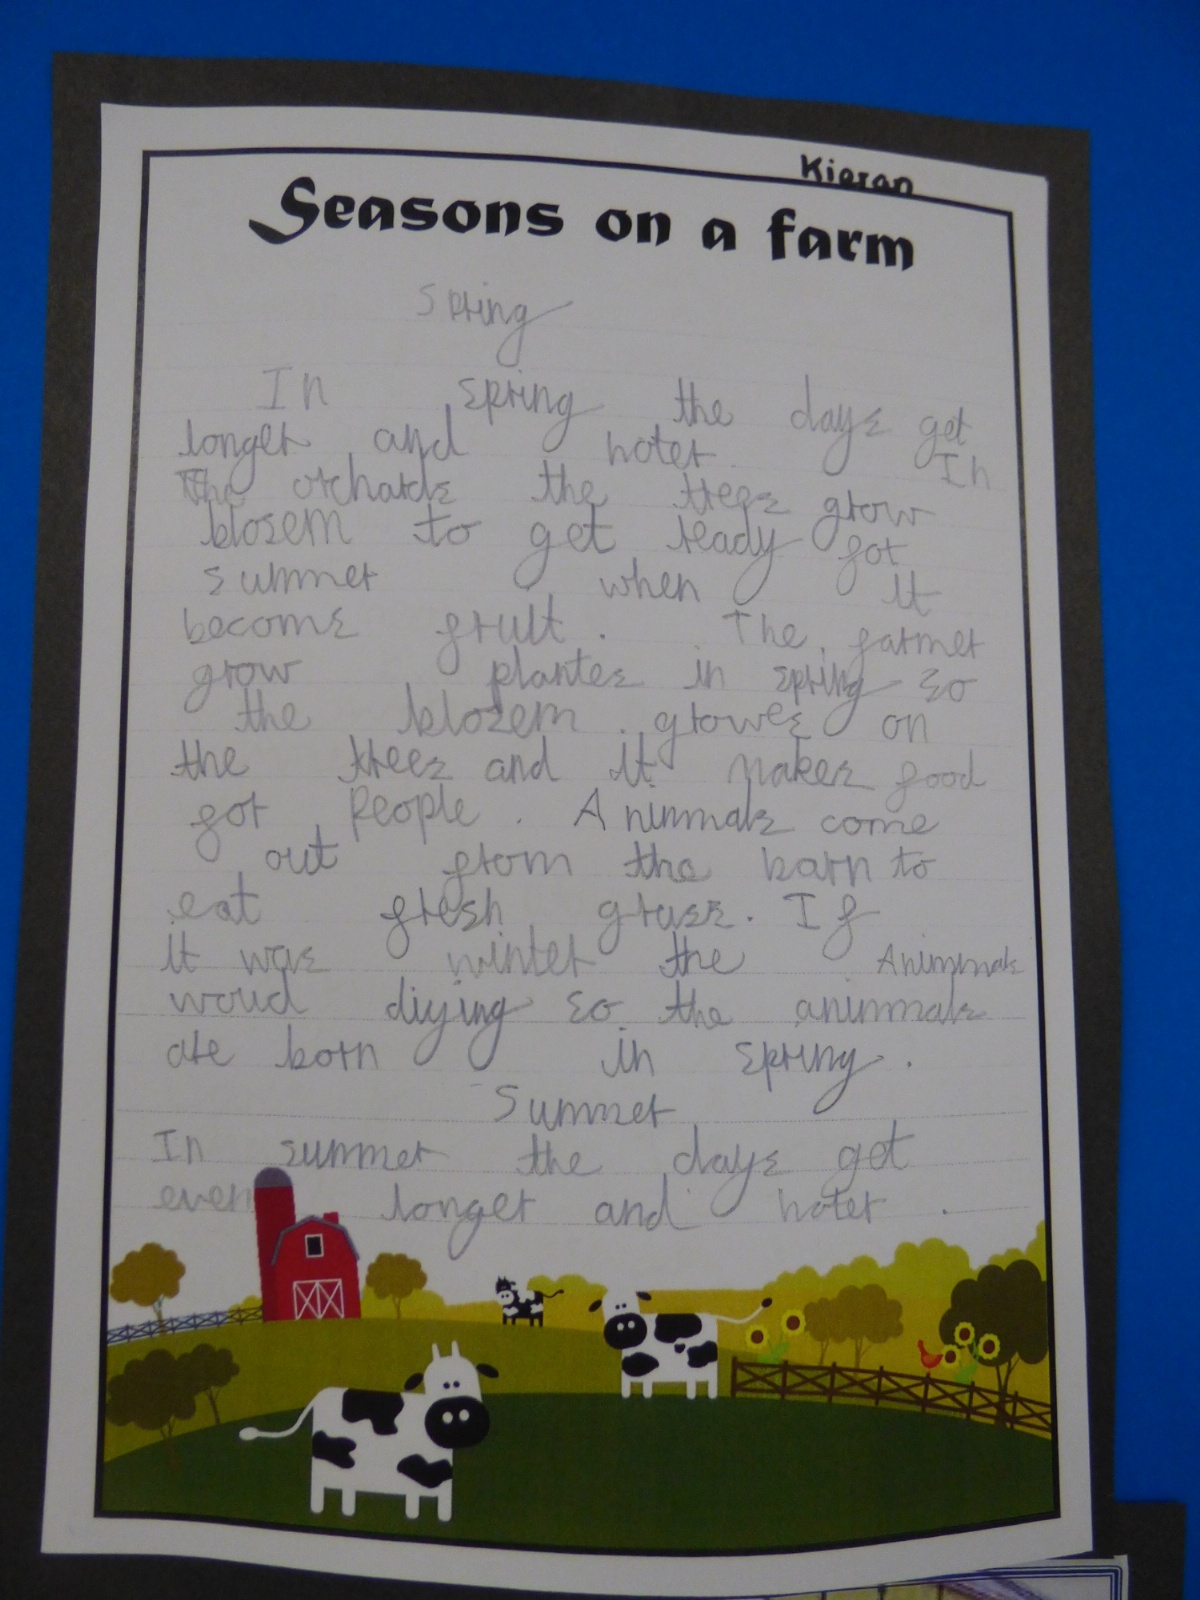 Kieran
Seasons on a farm
Spring
In spring the days get
longer and hoter. In
The orchards the trees grow
blosem to get ready for
summer when it
becoms fruit. The farmer
grow plantes in spring so
the blosem growes on
the trees and it makes food
for people. Aninmals come
out from the barn to
eat fresh grass. If
it was winter the Animmals
woud diying so the aninmals
are born in spring.
Summer
In summer the days get
even longer and hoter.